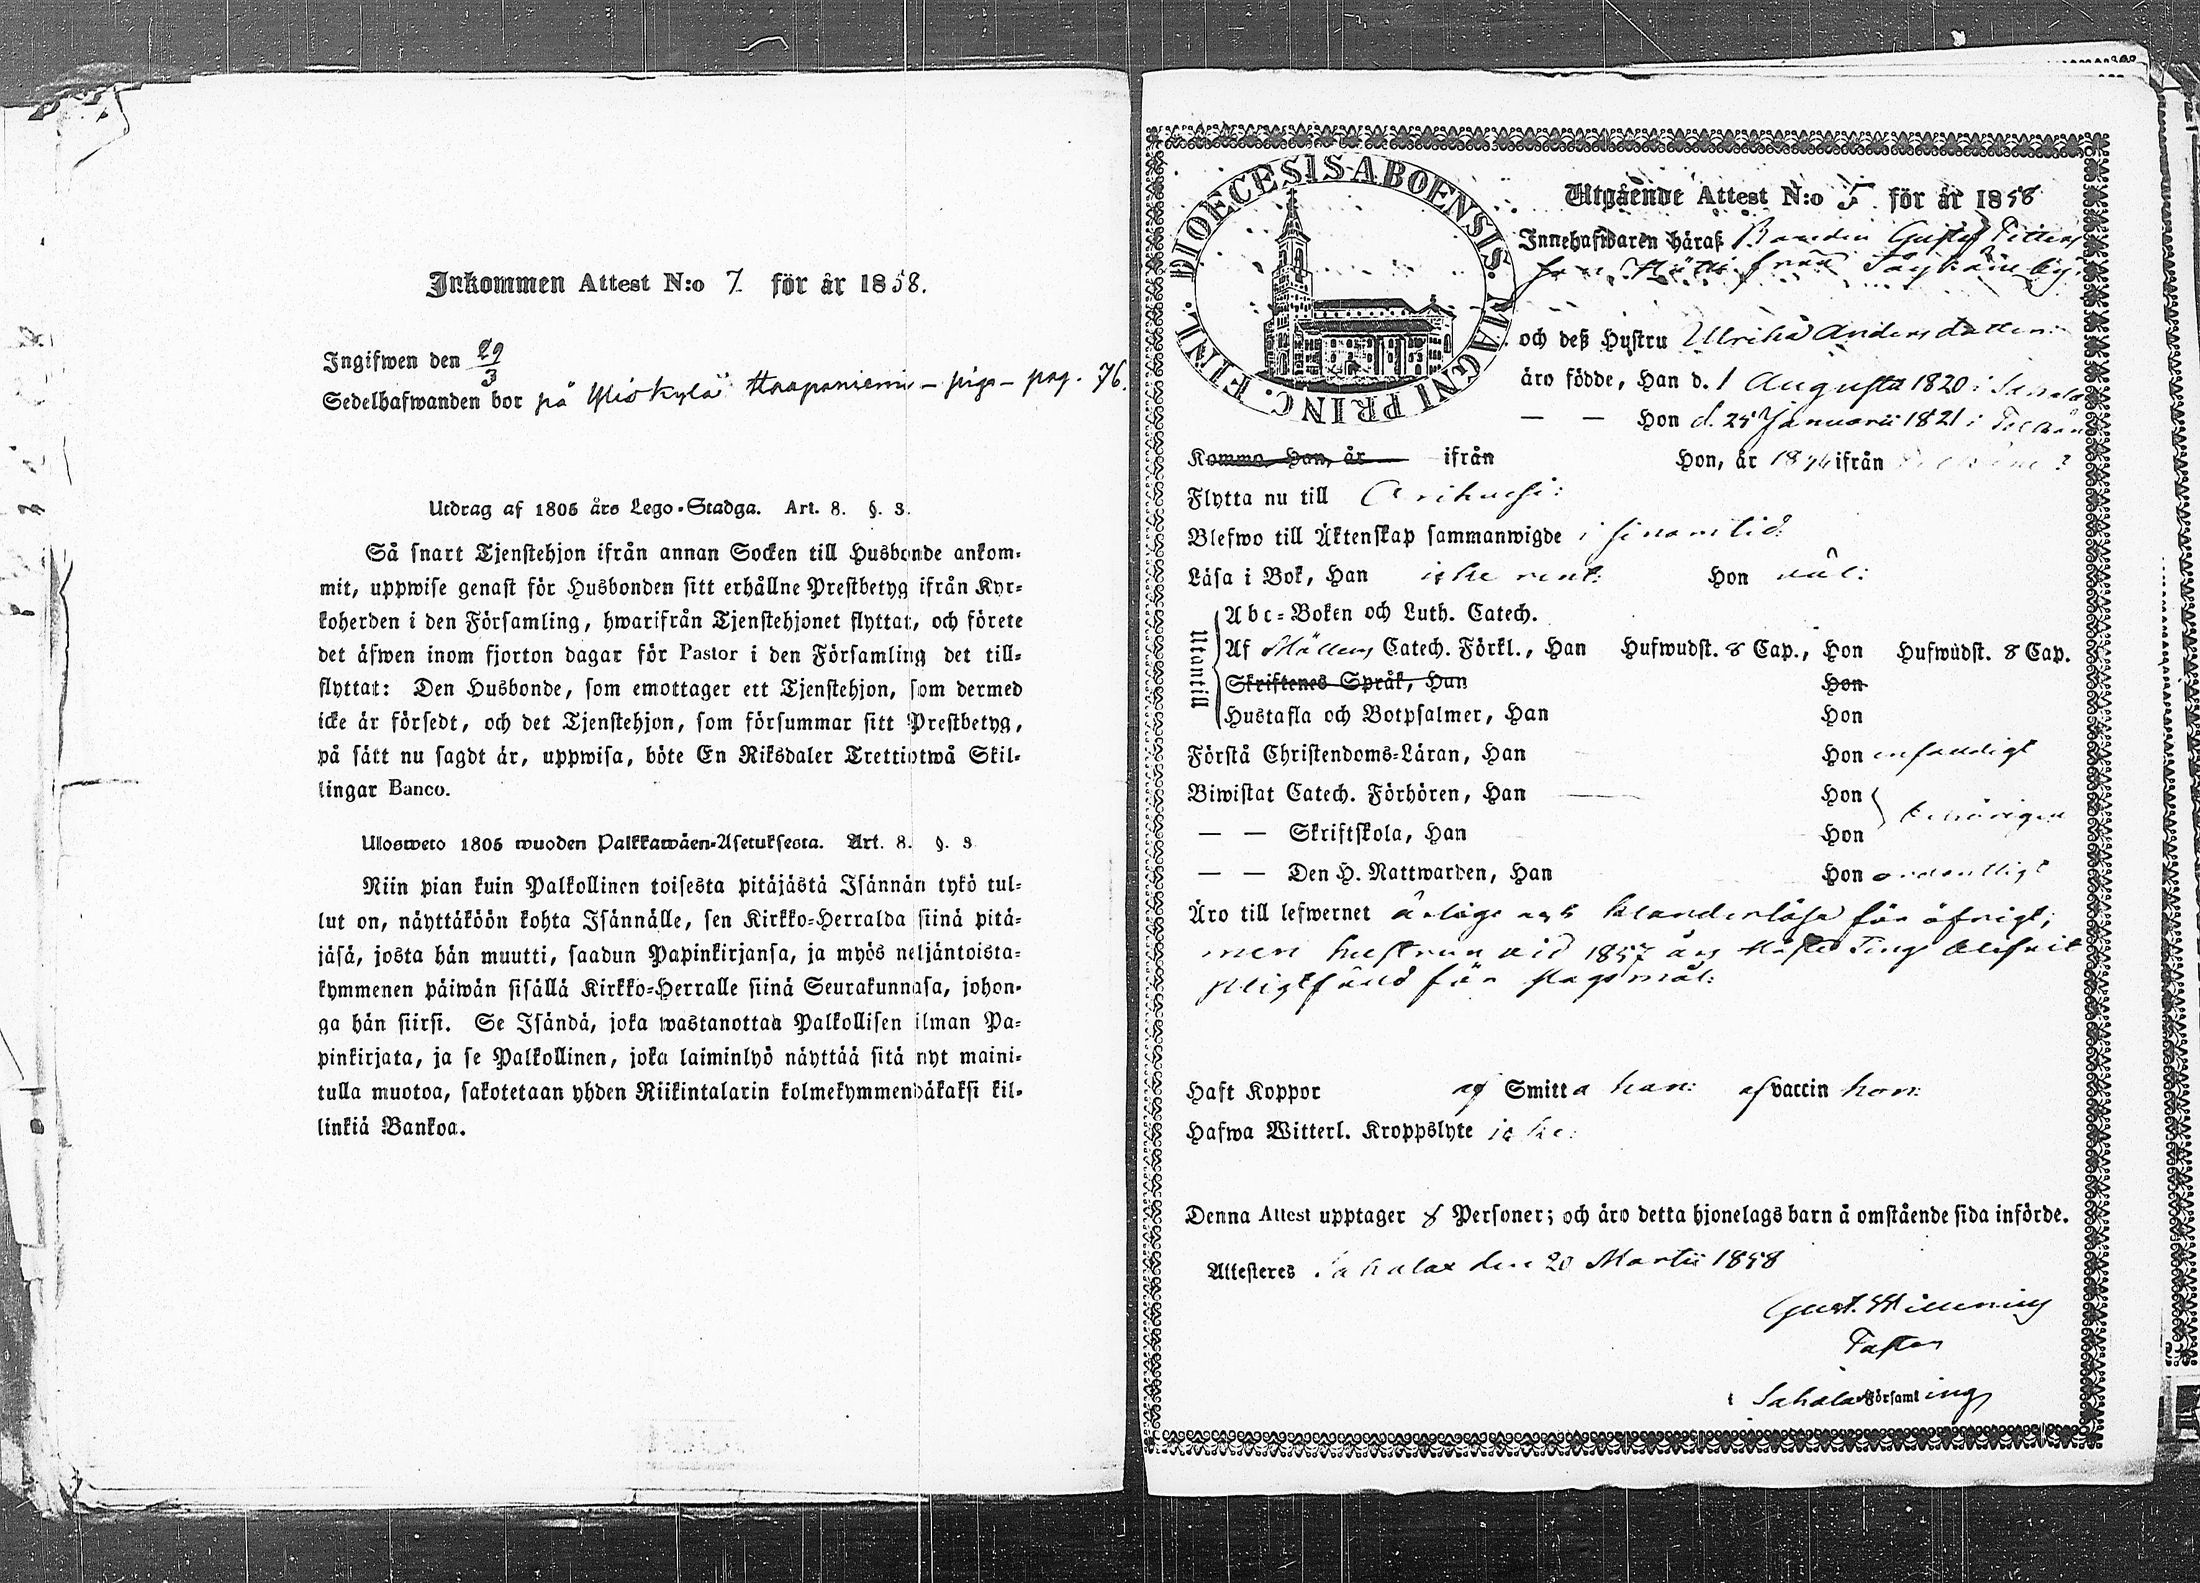 Inkommen Attest N:o 7 för år 1858.
Ingifwen den 29/3
Sedelhafwanden bor på Yliskylä Haapaniemi – piga – pag. 76.
Utdrag af 1805 års Lego-Stadga. Art. 8. §. 3.
Så snart Tjenstehjon ifrån annan Socken till Husbonde ankom-
mit, uppwise genast för Husbonden sitt erhållne Prestbetyg ifrån Kyr-
koherden i den Församling, hwarifrån Tjenstehjonet flyttat, och förete
det äfwen inom fjorton dagar för Pastor i den Församling det till-
flyttat: Den Husbonde, som emottager ett Tjenstehjon, som dermed
icke är försedt, och det Tjenstehjon, som försummar sitt Prestbetyg,
på sätt nu sagdt är, uppwisa, böte En Riksdaler Trettiotwå Skil-
lingar Banco.
Ulosweto 1805 wuoden Palkkawäen-Asetuksesta. Art. 8. §. 3
Niin pian kuin Palkollinen toisesta pitäjästä Isännän tykö tul-
lut on, näyttäköön kohta Isännälle, sen Kirkko-Herralda siinä pitä-
jäsä, josta hän muutti, saadun Papinkirjansa, ja myös neljäntoista-
kymmenen päiwän sisällä Kirkko-Herralle siinä Seurakunnasa, johon-
ga hän siirsi. Se Isändä, joka wastanottaa Palkollisen ilman Pa-
pinkirjata, ja se Palkollinen, joka laiminlyö näyttää sitä nyt maini-
tulla muotoa, sakotetaan yhden Riikintalarin kolmekymmendäkaksi kil-
linkiä Bankoa.
DIOECESIS ABOENSIS. MAGNI PRINC. FINL.
Utgående Attest N:o 5 för år 1858
Innehafwaren häraf Bonden Gustaf
från by
och deß Hustru Ulrika Andersdotter
äro födde, Han d. 1 Augusti 1820 i Sahala
— — Hon d. 25 Januarii 1821 i
Kommo, Han, år ifrån Hon, år ifrån
Flytta nu till Orihuesi:
Blefwo till Äktenskap sammanwigde i sinom tid:
Läsa i Bok, Han icke rent: Hon väl:
Utantill
Abc-Boken och Luth. Catech.
Af Möllers Catech. Förkl., Han Hufwudst. 8 Cap., Hon Hufwudst. 8 Cap.
Skriftenes Språk, Han Hon
Hustafla och Botpsalmer, Han Hon
Förstå Christendoms-Läran, Han Hon enfaldigt
Biwistat Catech. Förhören, Han Hon behörigen
— — Skriftskola, Han Hon
— — Den H. Nattwarden, Han Hon ordentligt
Äro till lefwernet ärlige och klanderlöse för öfrigt;
men hustrun vid 1857 års Höste Ting blifvit
pligtfäld för slagsmål:
Haft Koppor af Smitta han: af vaccin hon:
Hafwa Witterl. Kroppslyte icke:
Denna Attest upptager 8 Personer; och äro detta hjonelags barn å omstående sida införde.
Attesteres Sahalax den 20 Martii 1858
Gust.
Pastor
i Sahalax Församling